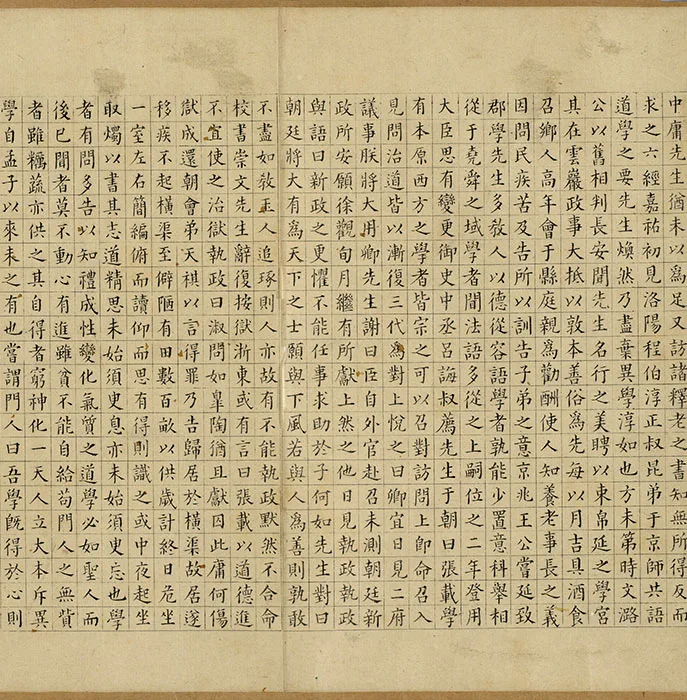 中庸先生猶未以為足又訪諸釋老之書知無所得反而
求之六經嘉祐初見洛陽程伯淳正叔昆弟于京師共語
道學之要先生煥然乃盡棄異學淳如也方未第時文潞
公以舊相判長安聞先生名行之美聘以束帛延之學宮
其在雲巖政事大抵以敦本善俗為先每以月吉具酒食
召鄉人高年會于縣庭親為勸酬使人知養老事長之義
因問民疾苦及告所以訓告子弟之意京兆王公嘗延致
郡學先生多教人以德從容語學者孰能少置意科舉相
從于堯舜之域學者聞法語多從之上嗣位之二年登用
大臣思有變更御史中丞呂誨叔薦先生于朝曰張載學
有本原西方之學者皆宗之可以召對訪問上即命召入
見問治道皆以漸復三代為對上悅之曰卿宜日見二府
議事朕將大用卿先生謝曰臣自外官赴召未測朝廷新
政所安願徐觀旬月繼有所獻上然之他日見執政執政
與語曰新政之更懼不能任事求助於子何如先生對曰
朝廷將大有為天下之士願與下風若與人為善則孰敢
不盡如教玉人追琢則人亦故有不能執政默然不合命
校書崇文先生辭復按獄浙東或有言曰張載以道德進
不宜使之治獄執政曰淑問如皐陶猶且獻囚此庸何傷
獄成還朝會弟天祺以言得罪乃告歸居於橫渠故居遂
移疾不起橫渠至僻陋有田數百畝以供歲計終日危坐
一室左右簡編俯而讀仰而思有得則識之或中夜起坐
取燭以書其志道精思未始須臾息亦未始須臾忘也學
者有問多告以知禮成性變化氣質之道學必如聖人而
後已聞者莫不動心有進雖貧不能自給苟門人之無貲
者雖糲蔬亦供之其自得者窮神化一天人立大本斥異
學自孟子以來未之有也嘗謂門人曰吾學既得於心則